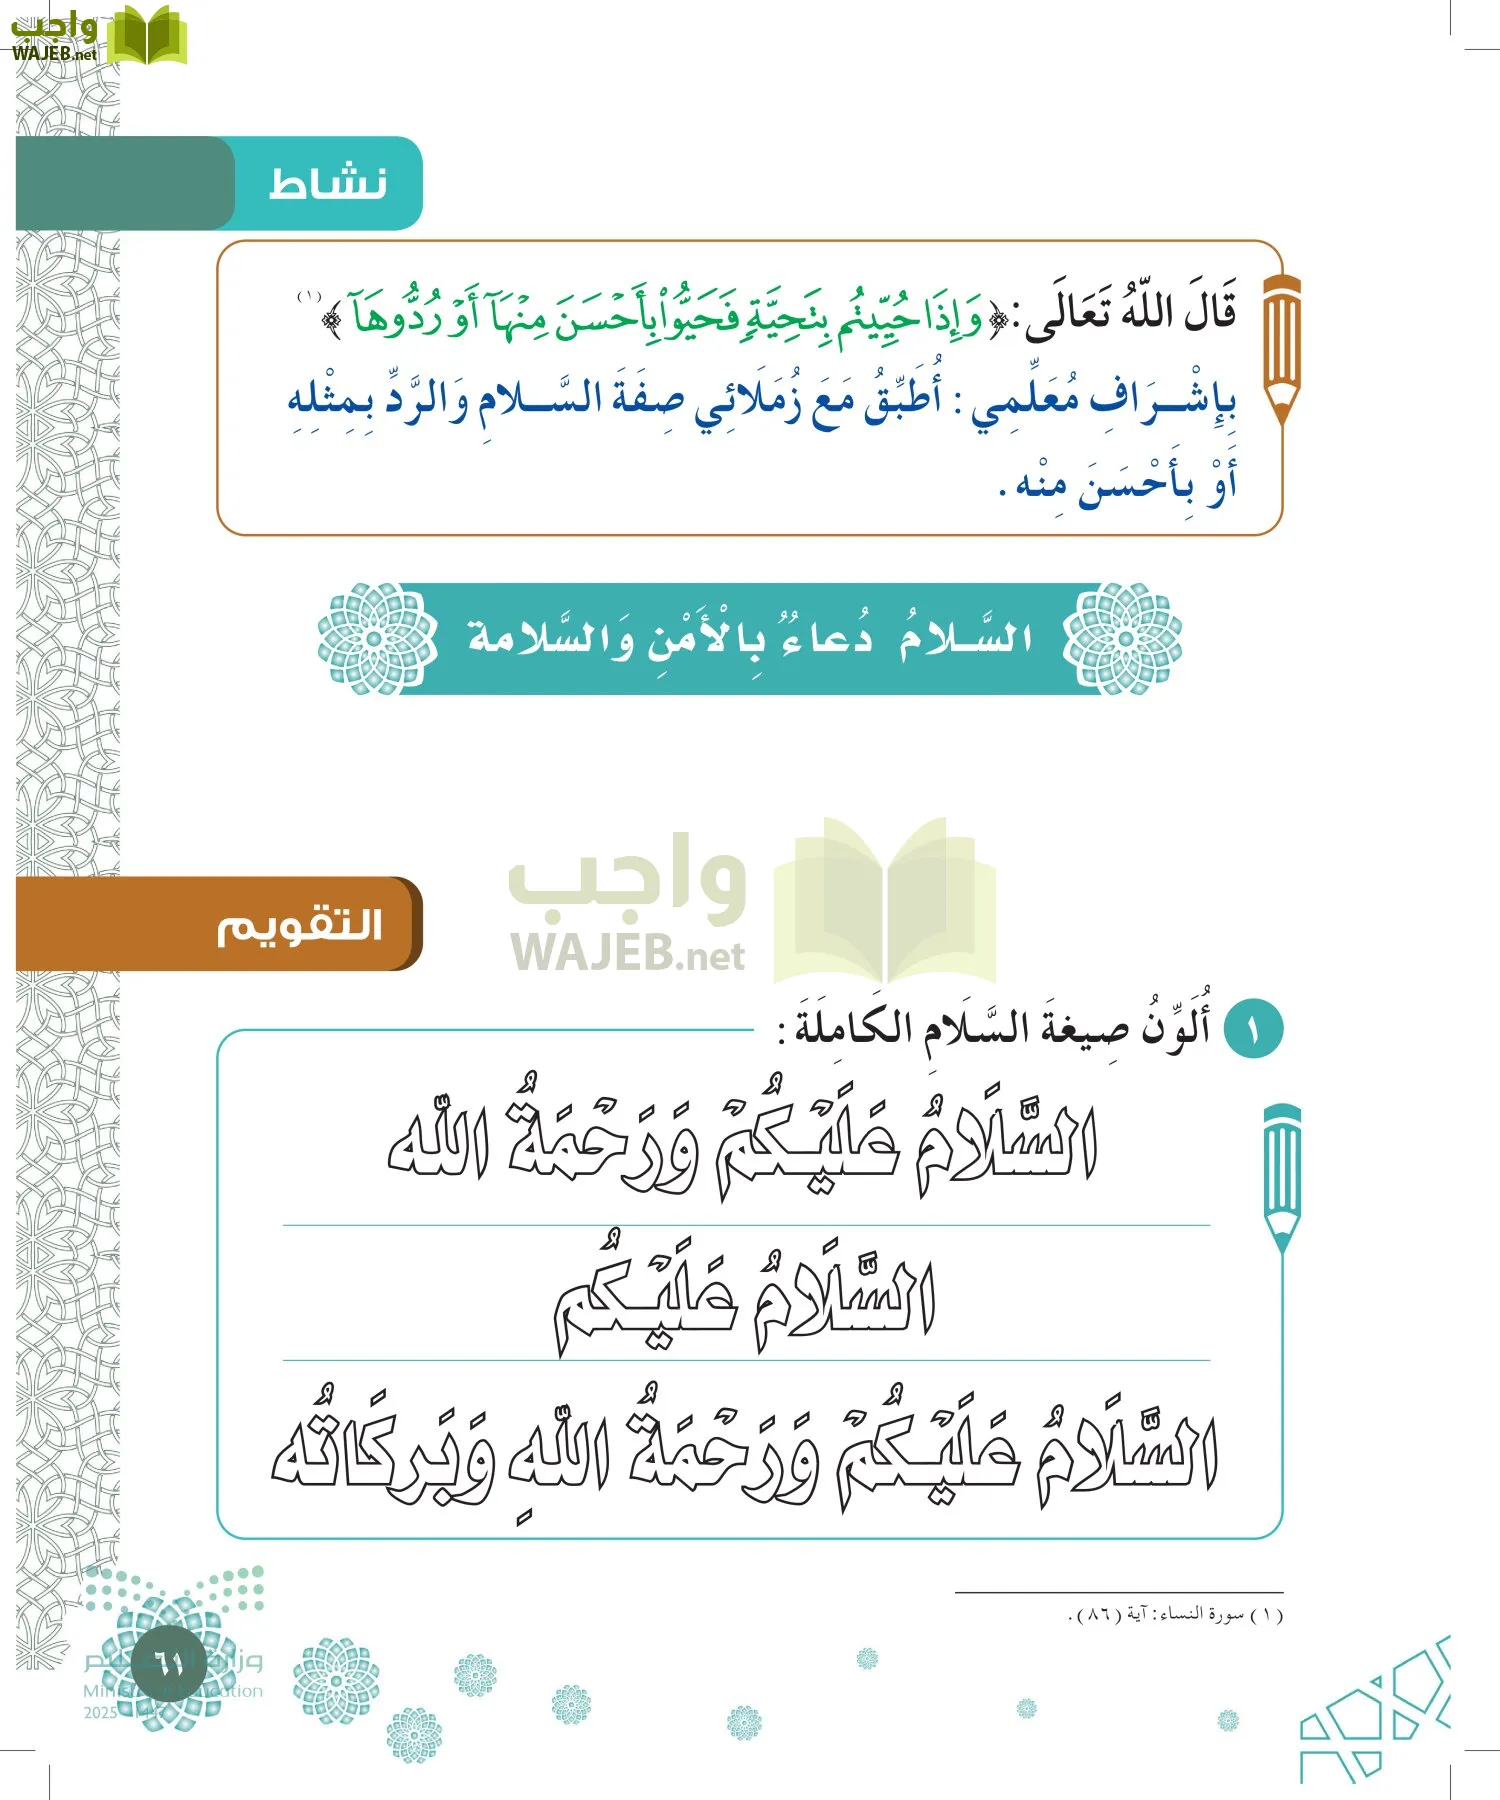 واجب
WAJEB.net
نشاط
قَالَ اللَّهُ تَعَالَى: ﴿وَإِذَا حُيِّيتُم بِتَحِيَّةٍ فَحَيُّوا۟ بِأَحْسَنَ مِنْهَآ أَوْ رُدُّوهَآ﴾ (١)
بِإِشْـرَافِ مُعَلِّمِي : أُطَبِّقُ مَعَ زُمَلَائِي صِفَةَ السَّـلامِ وَالرَّدِّ بِمِثْلِهِ
أَوْ بِأَحْسَنَ مِنْه .
السَّـلامُ دُعاءٌ بِالْأَمْنِ وَالسَّلامة
واجب
WAJEB.net
التقويم
١ أُلَوِّنُ صِيغَةَ السَّلَامِ الكَامِلَةَ :
السَّلَامُ عَلَيْكُمْ وَرَحْمَةُ اللّه
السَّلَامُ عَلَيْكُم
السَّلَامُ عَلَيْكُمْ وَرَحْمَةُ اللّهِ وَبَركَاتُه
(١) سورة النساء: آية (٨٦).
٦١
2025